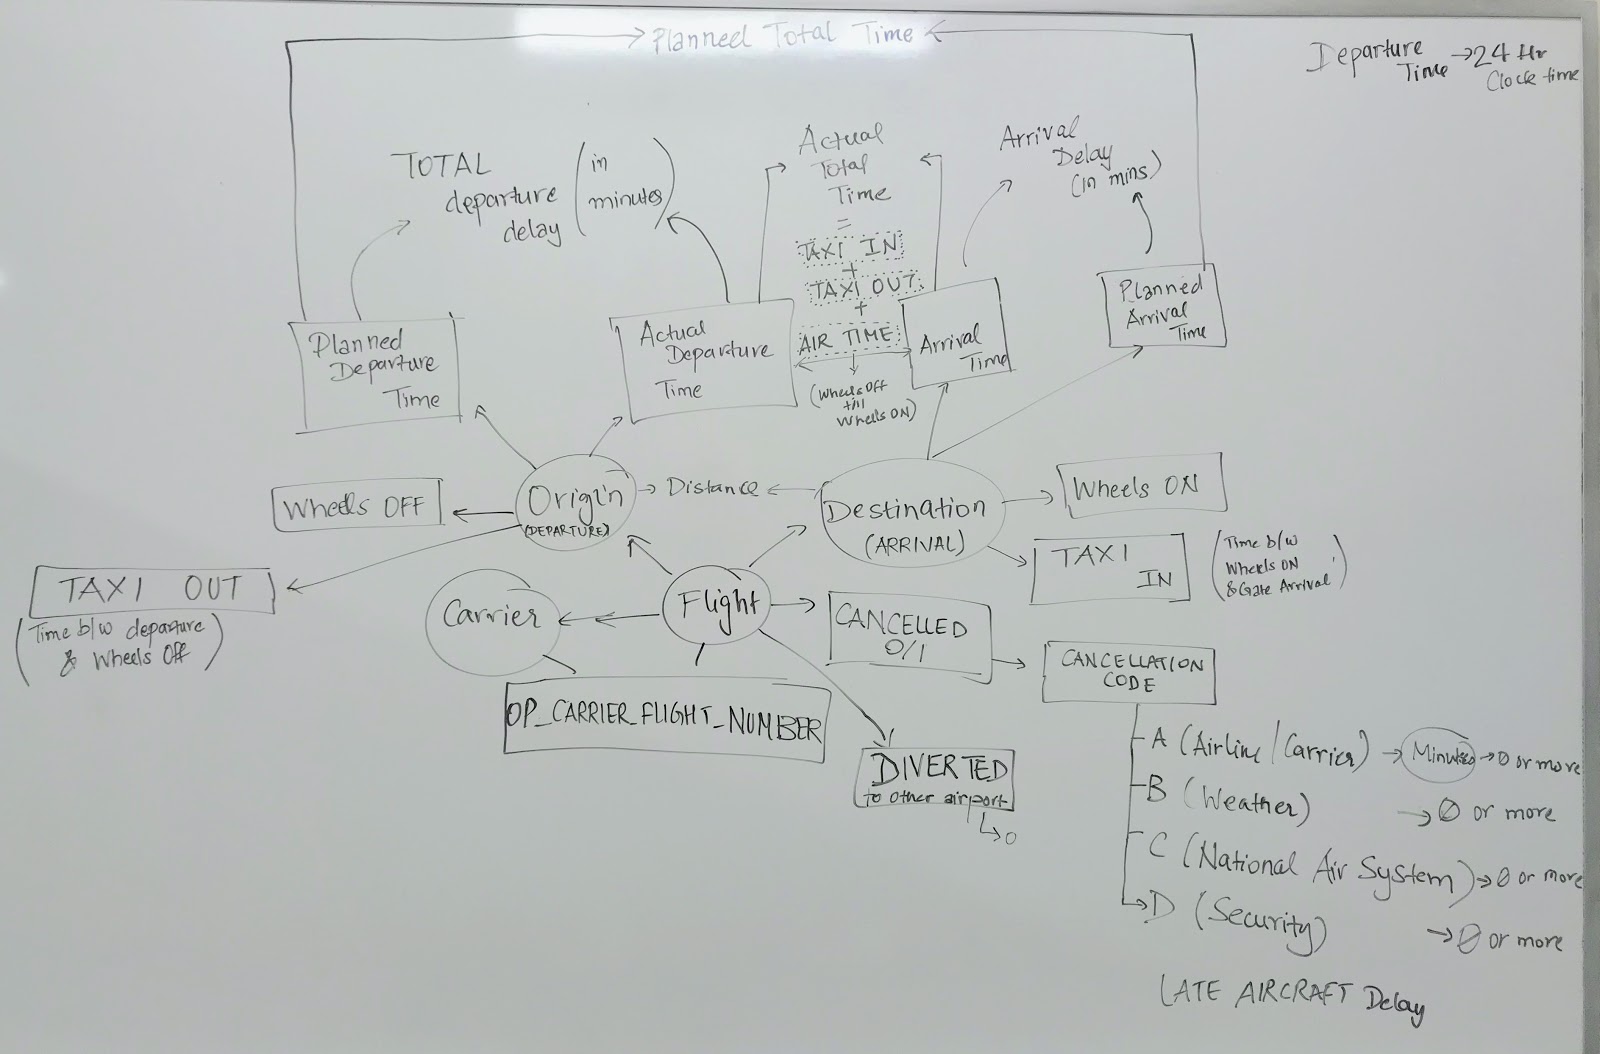 Planned Total Time
Departure
Time → 24 Hr
Clock time
TOTAL
departure
delay
(in
minutes)
Actual
Total
Time
=
TAXI IN
+
TAXI OUT
+
AIR TIME
(Wheels Off
till
Wheels ON)
Arrival
Delay
(in mins)
Planned
Departure
Time
Actual
Departure
Time
Arrival
Time
Planned
Arrival
Time
Wheels OFF
Origin
(DEPARTURE)
Distance
Destination
(ARRIVAL)
Wheels ON
TAXI OUT
(Time b/w departure
& Wheels Off)
TAXI
IN
(Time b/w
Wheels ON
& Gate Arrival)
Carrier
Flight
CANCELLED
0/1
CANCELLATION
CODE
OP_CARRIER_FLIGHT_NUMBER
DIVERTED
to other airport
↳ 0
A (Airline/Carrier) → Minutes → 0 or more
B (Weather) → 0 or more
C (National Air System) → 0 or more
D (Security) → 0 or more
LATE AIRCRAFT Delay